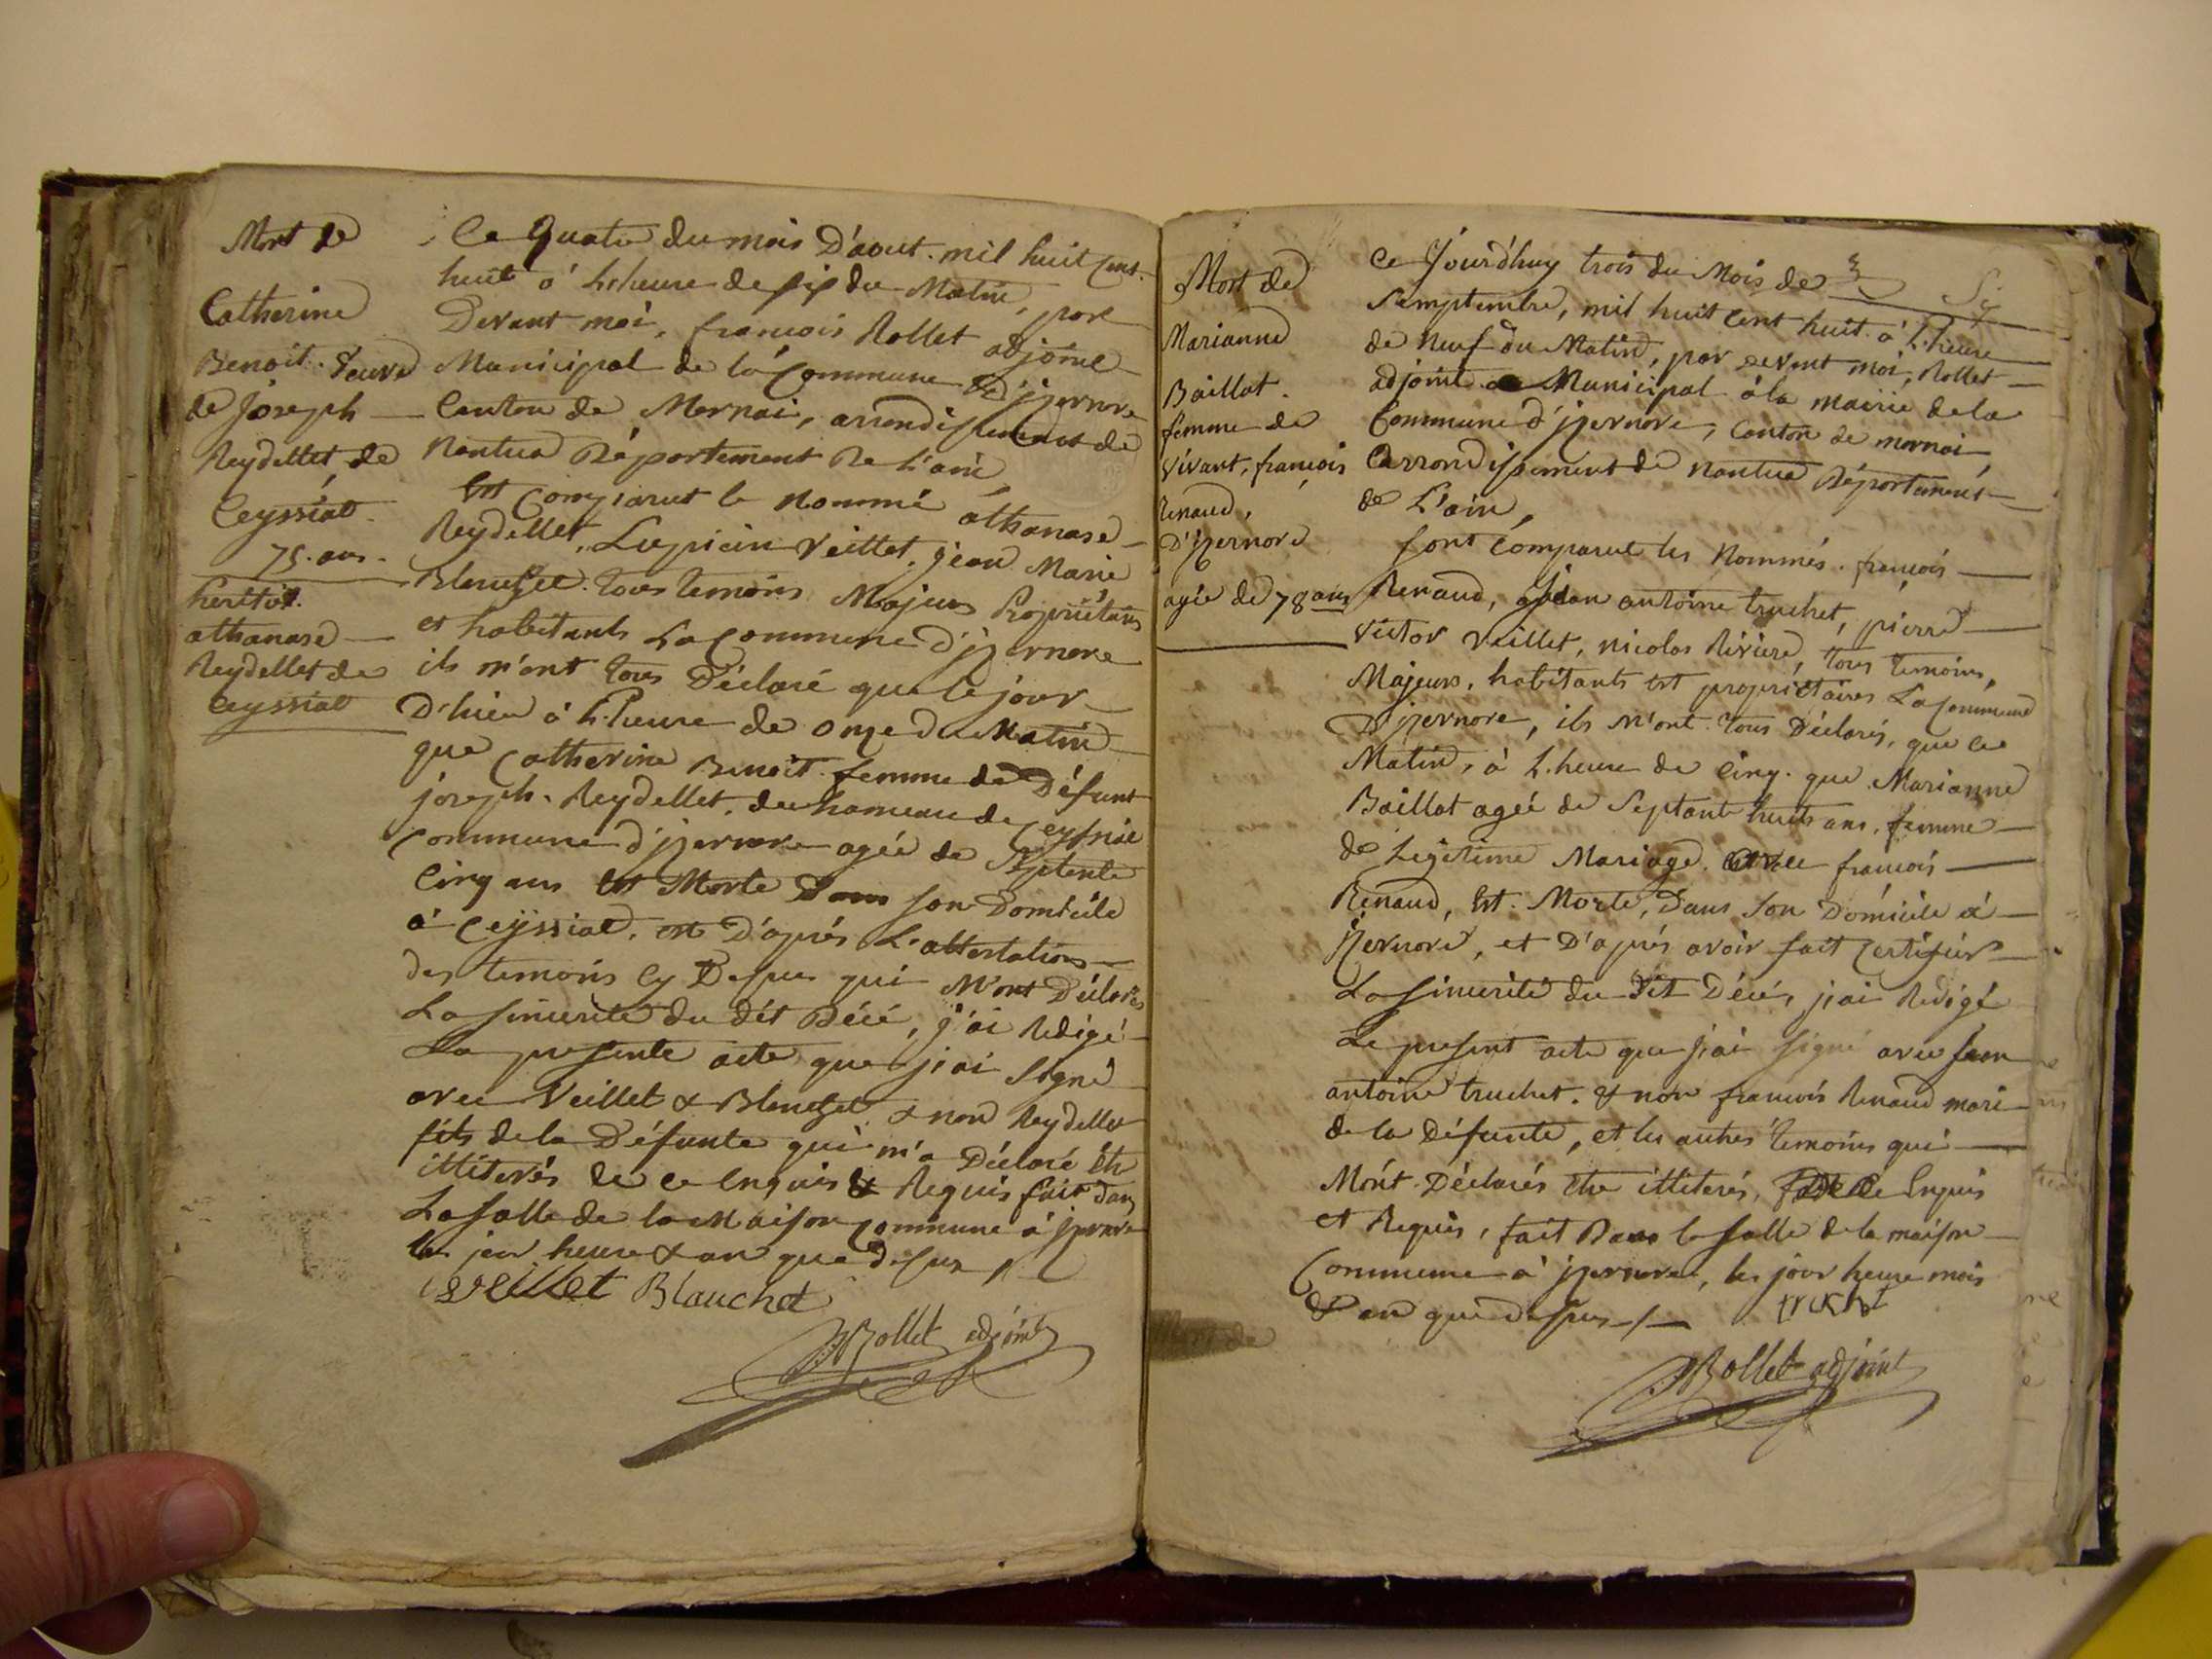 Mort de
Catherine
Benoit. veuve
de Joseph
Reydellet, de
Ceyssiat
75. ans.
heritier.
athanase
Reydellet de
Ceyssiat
Ce Quatre du mois D'aout. mil huit Cent.
huit à L'heure de six du Matin, par
Devant moi, francois Rollet adjoint
Municipal de la Commune d'jzernore
Canton de Mornai, arrondissement de
Nantua Département De L'ain,
Est Comparut le Nommé athanase
Reydellet, Lupicin Veillet, jean Marie
Blanchet. tous temoins Majeurs Propriétaires
et habitants La Commune d'jzernore
ils m'ont tous Déclaré que le jour
D'hier à L'heure de onze du Matin
que Catherine Benoit femme de Défunt
joseph. Reydellet. du hameau de Ceyssiat
Commune d'jzernore agée de Septente
Cinq ans Est Morte Dans son Domicile
à Ceÿssiat, et D'aprés L'attestation
des temoins Cy Dessus qui M'ont Déclarés
La sincerité du dit Décé, j'ai Redigé
La presente acte que j'ai Signé
avec Veillet & Blanchet & non Reydellet
fils de la Défunte qui m'a Déclaré être
illiterés de ce Enquis & Requis fait dans
La salle de la Maison Commune à jzernore
les jour heure & an que dessus
Veillet Blanchet
Rollet adjoint
Mort de
Marianne
Baillat.
femme de
vivant, françois
Renaud,
D'jzernore
agée de 78 ans
Ce Jourd'huy trois du Mois de
Semptembre, mil huit Cent huit à L'heure
de Neuf du Matin, par devant moi, Rollet
adjoint Municipal à la Mairie de la
Commune d'jzernore, Canton de mornai
arrondissement de Nantua Département
de L'ain,
sont Comparut les Nommés. françois
Renaud, jean antoine truchet, pierre
Victor Veillet, nicolas Riviere, tous temoins,
Majeurs, habitants Et proprietaires La Commune
D'jzernore, ils M'ont tous Déclarés, que ce
Matin, à L'heure de Cinq. que Marianne
Baillat agée de Septante huit ans, femme
de Legitime Mariage françois
Renaud, Est. Morte, Dans Son Domicile à
jzernore, et D'aprés avoir fait Certifier
La sincerité du Dit Décé, j'ai Redigé
Le present acte que j'ai signé avec jean
antoine truchet. & non francois Renaud mari
de la Défunte, et les autres temoins qui
M'ont Déclarés être illiterés, de Ce Enquis
et Requis, fait Dans la salle de la maison
Commune à jzernore, les jour heure mois
& an que dessus
Rollet adjoint